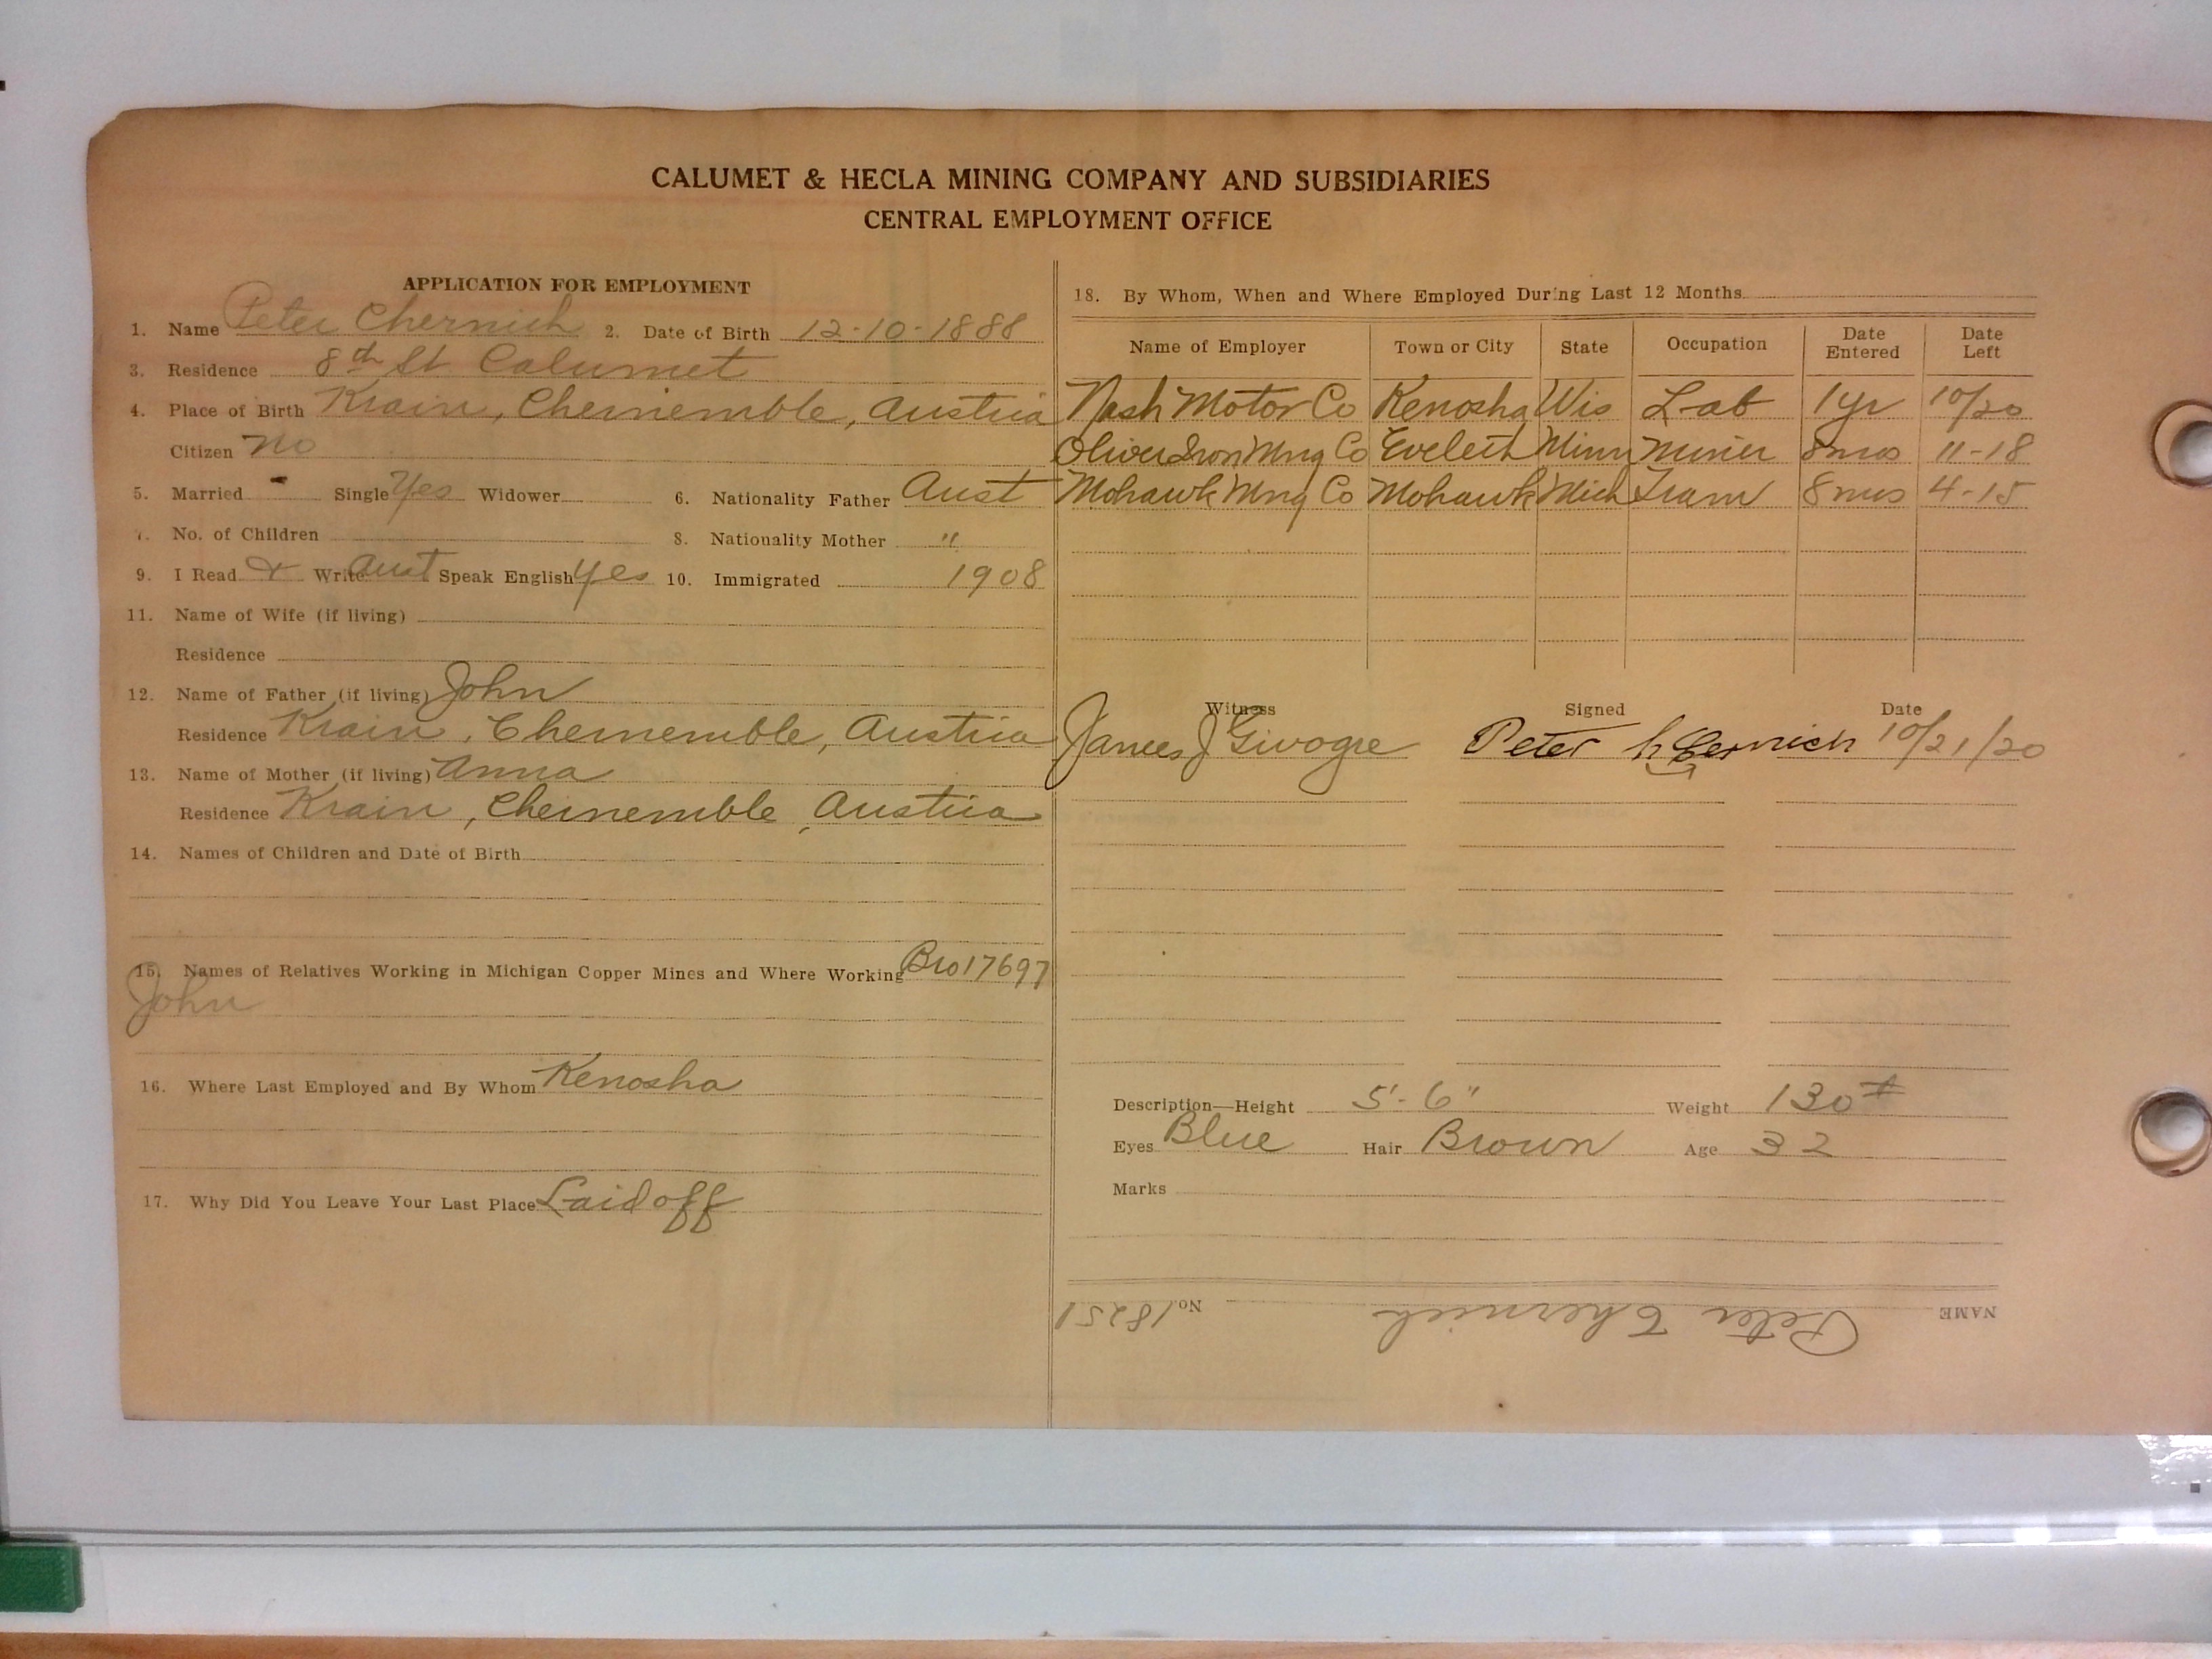 CALUMET & HECLA MINING COMPANY AND SUBSIDIARIES
CENTRAL EMPLOYMENT OFFICE
APPLICATION FOR EMPLOYMENT
1. Name Peter Chernich 2. Date of Birth 12-10-1888
3. Residence 8th St Calumet
4. Place of Birth Krain, Chernemble, Austria
Citizen No
5. Married - Single Yes Widower 6. Nationality Father Aust
7. No. of Children 8. Nationality Mother "
9. I Read & Write Aust Speak English Yes 10. Immigrated 1908
11. Name of Wife (if living)
Residence
12. Name of Father (if living) John
Residence Krain, Chernemble, Austria
13. Name of Mother (if living) Anna
Residence Krain, Chernemble, Austria
14. Names of Children and Date of Birth
15. Names of Relatives Working in Michigan Copper Mines and Where Working Bro 17697
John
16. Where Last Employed and By Whom Kenosha
17. Why Did You Leave Your Last Place Laid off
18. By Whom, When and Where Employed During Last 12 Months
Name of Employer Town or City State Occupation Date Entered Date Left
Nash Motor Co Kenosha Wis Lab 1yr 10/20
Oliver Iron Mng Co Eveleth Minn Miner 8mos 11-18
Mohawk Mng Co Mohawk Mich Tram 8mos 4-15
Witness Signed Date
James J Peter 10/21/20
Description—Height 5'-6" Weight 130#
Eyes Blue Hair Brown Age 32
Marks
NAME Peter Chernich No. 18251